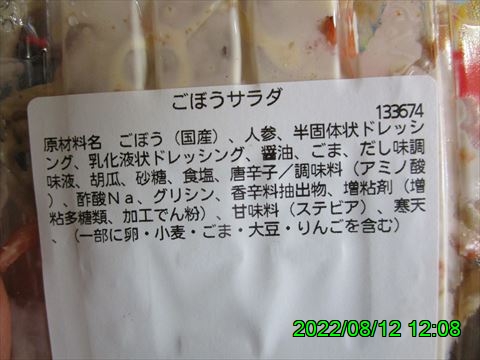 ごぼうサラダ
133674
原材料名 ごぼう（国産）、人参、半固体状ドレッシ
ング、乳化液状ドレッシング、醤油、ごま、だし味調
味液、胡瓜、砂糖、食塩、唐辛子／調味料（アミノ酸
）、酢酸Ｎａ、グリシン、香辛料抽出物、増粘剤（増
粘多糖類、加工でん粉）、甘味料（ステビア）、寒天
、（一部に卵・小麦・ごま・大豆・りんごを含む）
2022/08/12 12:08